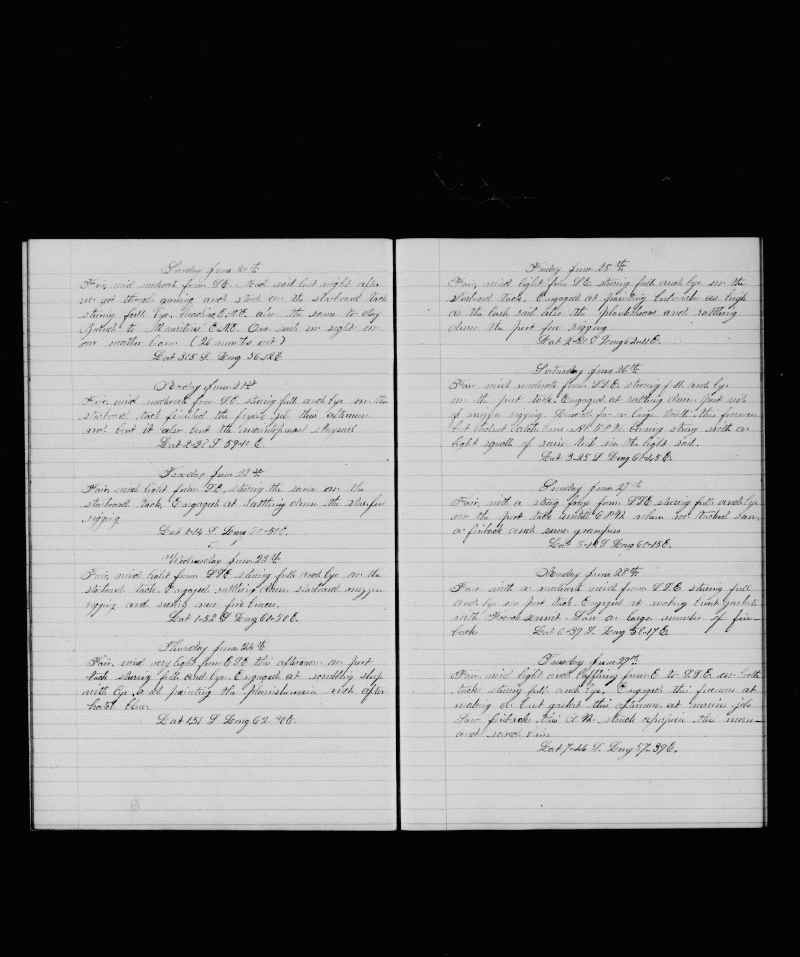 Sunday June 20th
Fair, wind moderate from SE. Made sail last night after
we got through gaming and stood on the starboard tack
steering full bye, heading E.N.E. are the same to day
bound to Mauritius E.N.E. One sail in sight in
our weather beam (26 months out)
Lat 3-15 S Long 56-52 E.
Monday June 21st
Fair, wind moderate from SE. steering full and bye on the
starboard tack finished the flying jib this afternoon
and bent it also bent the staysail
Lat 2-28 S 59-10 E.
Tuesday June 22th
Fair, wind light from SE, steering the same on the
starboard tack. Engaged at rattling down the starboard fore
rigging
Lat 2-14 S Long 60-50 E.
Wednesday June 23th
Fair, wind light from SSE steering full and bye on the
starboard tack. Engaged rattling down starboard mizzen
rigging and new fore braces.
Lat 1-52 S Long 61-50 E.
Thursday June 24th
Fair, wind very light from ESE this afternoon on port
tack steering full and bye. Engaged at scrubbing ship
with lye, and painting the
Lat 1-51 S Long 62-30 E.
Friday June 25th
Fair, wind light from SE steering full and bye on the
starboard tack. Engaged at painting bulwarks as high
as the lash rail also the plankshear and rattling
down the port fore rigging
Lat 2-20 S Long 62-11 E.
Saturday June 26th
Fair wind moderate from S.S.E. steering full and bye
on the port tack. Engaged at rattling down port side
of mizzen rigging. Lowered for a large this forenoon
but did not catch him. At 5 P.M. coming strong with a
light squalls of rain took in the light sail.
Lat 3-25 S Long 61-45 E.
Sunday June 27th
Fair, with a strong from SSE steering full and bye
on the port tack until 6 P.M. when we tacked saw
a finback and some grampus
Lat 5-1 S Long 60-15 E.
Monday June 28th
Fair with a moderate wind from S.S.E. steering full
and bye on port tack. Engaged at making bunt gaskets
with French sennit. Saw a large number of fin-
backs Lat 6-39 S. Long 58-17 E.
Tuesday June 29th
Fair wind light and baffling from E to S.S.E. on both
tacks steering full and bye. Engaged this forenoon at
making a bunt gasket this afternoon at various jobs
Saw finbacks this A.M. struck a porpoise this
and saved him
Lat 7-46 S. Long 57-39 E.